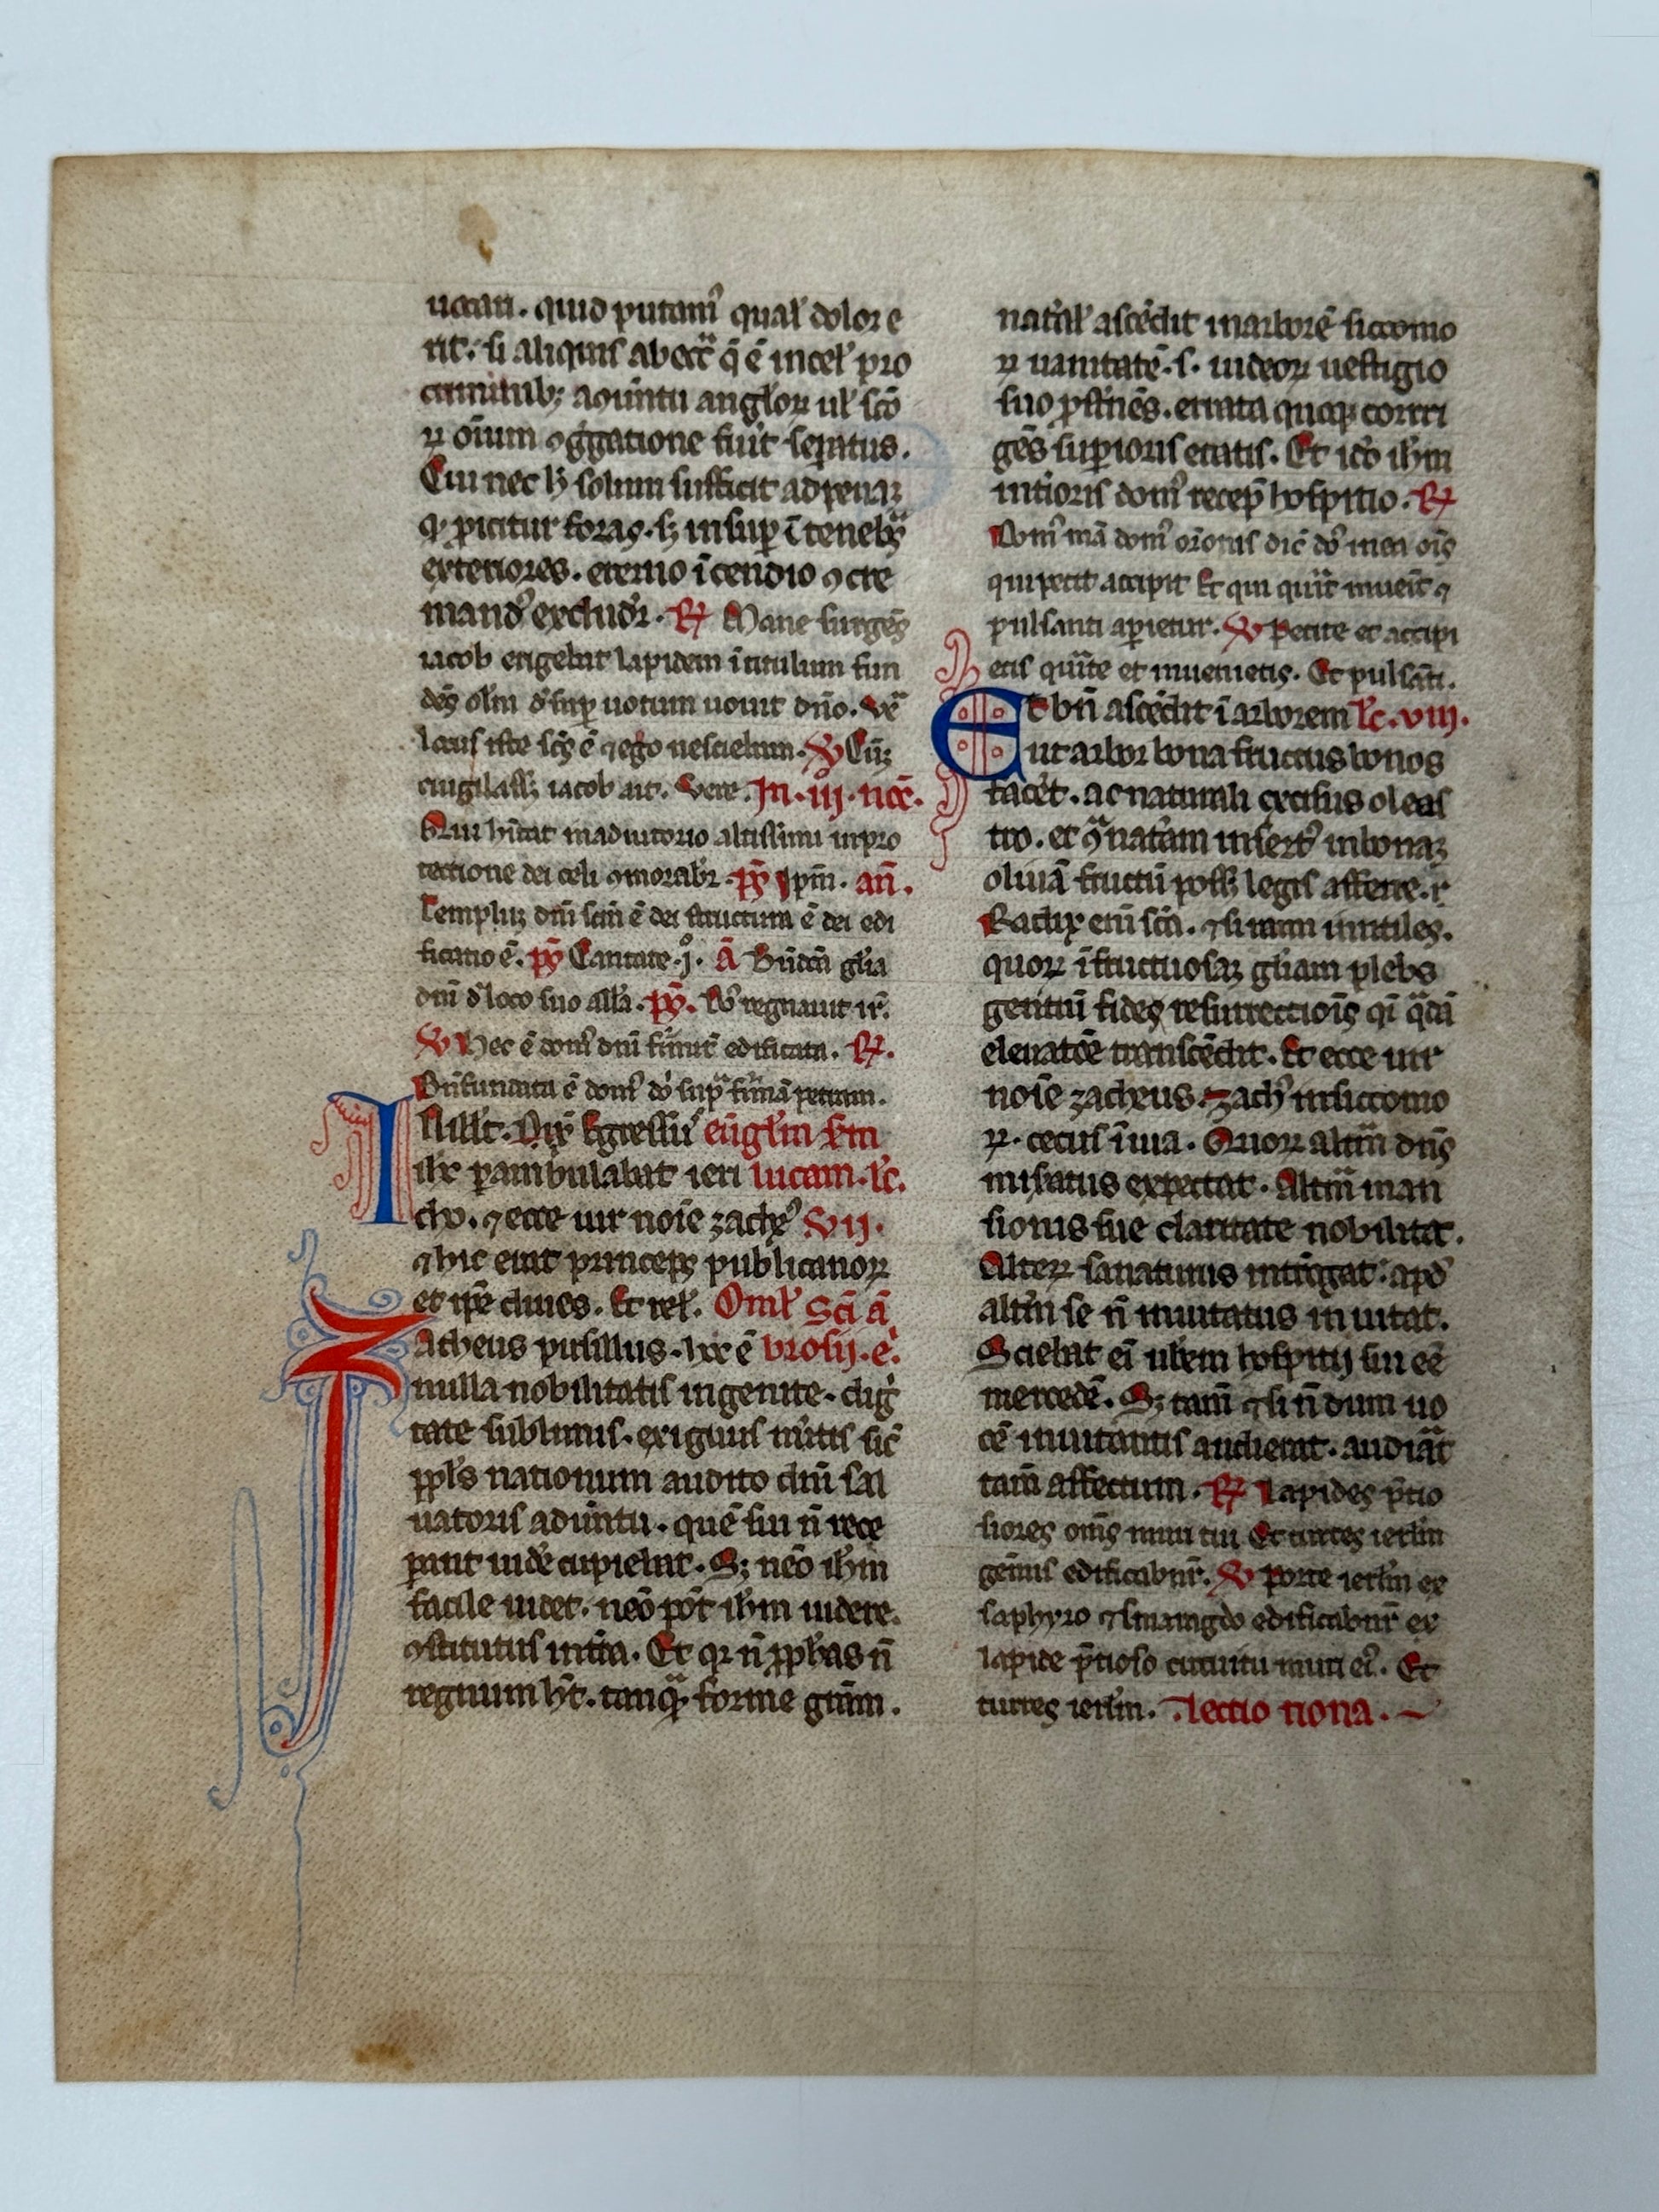 uocati. quid putam᷒ qual̕ dolor e
rit. si aliquis ab ecc̄a q̄ ē in cel̕ pro
cumitib; aduentu angl̕oꝝ ul̕ sc̄o
ꝝ oīum ꝯg̃gatione fuit sep̱atus.
Cui nec h̕ solum sufficit ad penaꝫ
ꝙ ꝓicitur foras. sꝫ insuꝑ ī tenebᵃs
exteriores. eterno īcendio ꝯcre
mand᷒ exclud̕r. ℟ Mane surgēs
iacob erigebat lapidem ī titulum fun
dēs ol̕m d̕suꝑ uotum uouit dn̄o. Ve̾
locus iste sc̄s ē ⁊ ego nesciebam. ℣ Cūꝫ
euigilass; iacob ait. Vere. In .iij. noc̄.
Qui h̕itat in adiutorio altissimi in pro
tectione dei celi ꝯmorabr̄. ps̄ ip̄m. an̄.
Templuꝫ dn̄i sc̄m ē dei structura ē dei edi
ficatio ē. ps̄ Cantate .j̊. ā Bn̄dc̄a gl̕ia
dn̄i d̕ loco suo all̕a. ps̄. Dn̄s regnauit ir̄.
℣ Hec ē dom᷒ dn̄i firmit̕ edificata. ℟.
Bn̄ fundata ē dom᷒ dn̄i supᵃ firmā petram.
In ill̕ t̕. Dix̄ Egressus eūgl̕m sm̄
ih̄c ꝑambulabat ieri lucam. lc̄.
cho. ⁊ ecce uir noīe zache᷒ vij.
⁊ hic erat princeps publicanoꝝ
et ip̄e diues. Et rel̕. Omel̕ Sc̄i ā
Zacheus pusillus. hoc ē brosij. ep̄i.
nulla nobilitatis ingenite. dig̕
tate sublimis. exiguus m̕itis sic̄
pp̄ls nationum audito dn̄i sal
uatoris aduentu. quē sui n̄ rece
perant uid̕e cupiebat. Sꝫ nēo ih̄m
facile uidet. nēo pōt ih̄m uidere.
ꝯstitutus in t̕ra. Et qr n̄ ꝓph̕as n̄
regnum h̕t. tanqᵃ forme gr̄am.
nat̕al̕ ascēdit in arborē siccomo
ꝝ uanitatē .s. iudeoꝝ uestigio
suo ꝓst̕nēs. errata quoqꝫ corri
gēs suꝑioris etatis. Et id̕o ih̄m
int̕ioris dom᷒ recep̄ hospitio. ℟
Dom᷒ mā dom᷒ or̄onis dic̄ dn̄s in ea oīs
qui petit accipit Et qui quīt inuenit ⁊
pulsanti aꝑietur. ℣ Petite et accipi
etis quīte et inuenietis. Et pulsāti.
Et bn̄ ascēdit ī arborem lc̄. viij.
ut arbor bona fructus bonos
facet. ac naturali excisus oleas
tro. et ꝯᵃ naturam insert᷒ in bonaꝫ
oliuā fructū poss; legis afferre. r
Radix enī sc̄a. ⁊ si rami inutiles.
quoꝝ īfructuosaꝫ gl̕iam plebs
gentiū fides resurrectiōis qi qᵃdā
eleuatōe transcēdit. Et ecce uir
noīe zacheus. Zach᷒ in siccomo
ꝝ. cecus ī uia. Quoꝝ alt̕um dn̄s
mis̕atus expectat. Alt̕um man
sionis sue claritate nobilitat.
Alterꝝ sanaturus int̕rogat. apd̕
alt̕m se n̄ inuitatus inuitat.
Sciebat eī ub̕em hospitij sui eē
mercedē. Sꝫ tam̄ ⁊ si n̄dum uo
cē inuitantis audierat. audiat
tam̄ affectum. ℟ Lapides p̄tio
siores om̄s muri tui Et turres ier̄lm
gēmis edificabnr̄. ℣ Porte ier̄lm ex
saphyro ⁊ smaragdo edificabnr̄ ex
lapide p̄tioso circuitu muri ei᷒. Et
turres ier̄lm. Lectio nona.